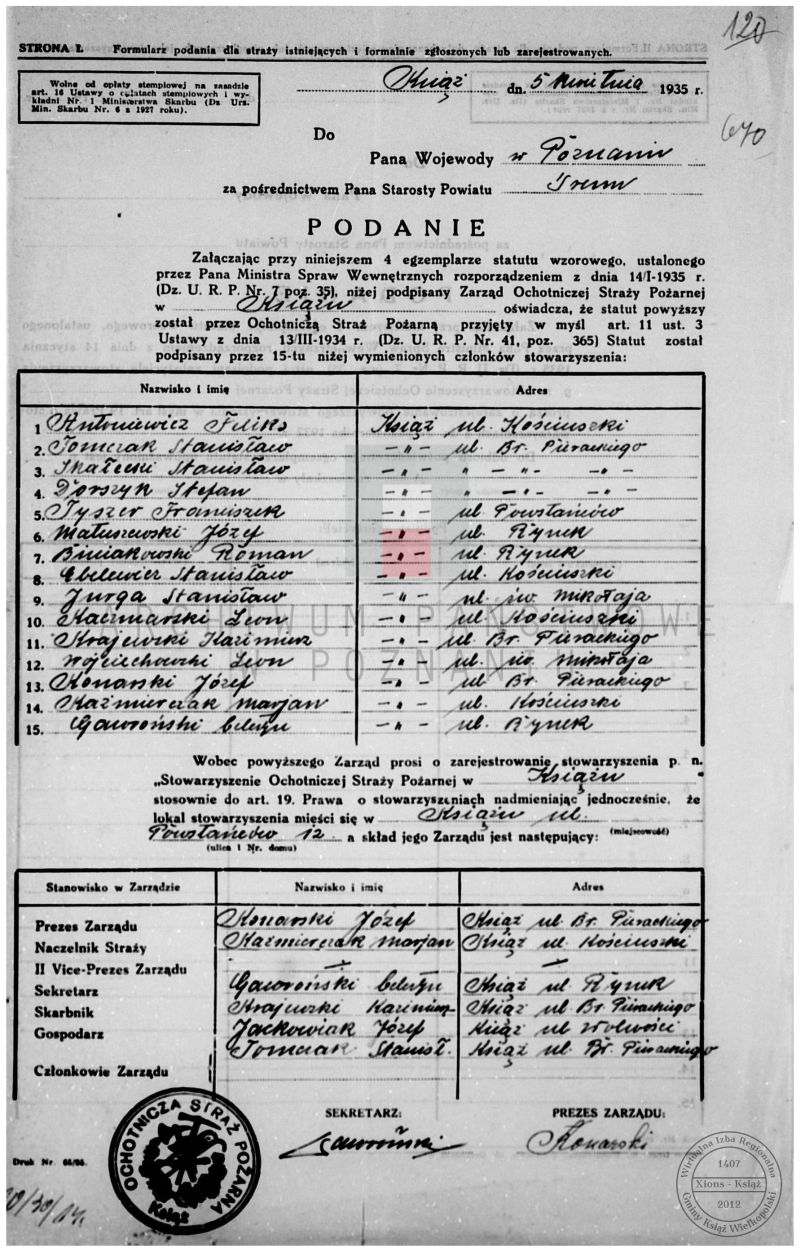 120
STRONA I. Formularz podania dla straży istniejących i formalnie zgłoszonych lub zarejestrowanych.
Wolne od opłaty stemplowej na zasadzie
art. 16 Ustawy o opłatach stemplowych i wy-
kładni Nr. 1 Ministerstwa Skarbu (Dz Urz.
Min. Skarbu Nr. 6 z 1927 roku).
Książ dn. 5 kwietnia 1935 r.
670
Do
Pana Wojewody w Poznaniu
za pośrednictwem Pana Starosty Powiatu Śrem
PODANIE
Załączając przy niniejszem 4 egzemplarze statutu wzorowego, ustalonego
przez Pana Ministra Spraw Wewnętrznych rozporządzeniem z dnia 14/I-1935 r.
(Dz. U. R. P. Nr. 7 poz. 35), niżej podpisany Zarząd Ochotniczej Straży Pożarnej
w Książu oświadcza, że statut powyższy
został przez Ochotniczą Straż Pożarną przyjęty w myśl art. 11 ust. 3
Ustawy z dnia 13/III-1934 r. (Dz. U. R. P. Nr. 41, poz. 365) Statut został
podpisany przez 15-tu niżej wymienionych członków stowarzyszenia:
Nazwisko i imię Adres
1 Antoniewicz Feliks Książ ul. Kościuszki
2. Tomczak Stanisław — „ — ul. Br. Pierackiego
3. Skałecki Stanisław — „ — „ — „ — — „ —
4. Dorszyk Stefan — „ — „ — „ — — „ —
5. Tyszer Franciszek — „ — ul Powstańców
6. Matuszewski Józef — „ — ul. Rynek
7. Biniakowski Roman — „ — ul. Rynek
8. Ebelewicz Stanisław — „ — ul. Kościuszki
9. Jurga Stanisław — „ — ul. św. Mikołaja
10. Kaczmarski Leon — „ — ul. Kościuszki
11. Krajewski Kazimierz — „ — ul. Br. Pierackiego
12. Wojciechowski Leon — „ — ul. św. Mikołaja
13. Konarski Józef — „ — ul. Br. Pierackiego
14. Kaźmierczak Marjan — „ — ul. Kościuszki
15. Gaworoński Celestyn — „ — ul. Rynek
ARCHIWUM PAŃSTWOWE
W POZNANIU
Wobec powyższego Zarząd prosi o zarejestrowanie stowarzyszenia p. n.
„Stowarzyszenie Ochotniczej Straży Pożarnej w Książu "
stosownie do art. 19. Prawa o stowarzyszeniach nadmieniając jednocześnie, że
lokal stowarzyszenia mieści się w Książu ul.
(miejscowość)
Powstańców 12 a skład jego Zarządu jest następujący:
(ulica i Nr. domu)
Stanowisko w Zarządzie Nazwisko i imię Adres
Prezes Zarządu Konarski Józef Książ ul. Br. Pierackiego
Naczelnik Straży Kaźmierczak Marjan Książ ul Kościuszki
II Vice-Prezes Zarządu — —
Sekretarz Gaworoński Celestyn Książ ul. Rynek
Skarbnik Krajewski Kazimierz Książ ul. Br. Pierackiego
Gospodarz Jackowiak Józef Książ ul Wolności
Tomczak Stanisł. Książ ul. Br. Pierackiego
Członkowie Zarządu
SEKRETARZ: PREZES ZARZĄDU:
Gaworoński Konarski
OCHOTNICZA STRAŻ POŻARNA
Książ
Druk Nr. 66/86.
Wirtualna Izba Regionalna
1407
Xions - Książ
2012
Gminy Książ Wielkopolski